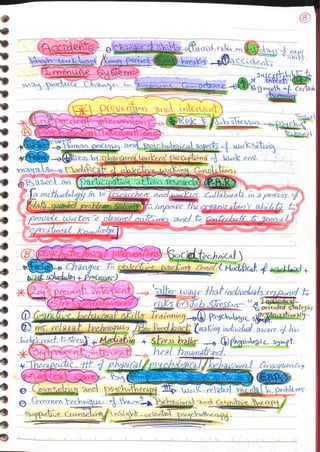 8
Accidents → change of shifts
High work load / long period breaks → ↑ accident
Immune System
may produce changes in immune competence → growth of certain tumours
* prevention and intervent
* 1ry prevention interventions → Risk & job stressors
A Psychosocial interventions
Focus → human process and psychological aspects of work setting
Aim → stress by changing workers' perceptions of work env.
may also Modificat. of objective working Conditions
Based on participatory action research P.A.R
a methodology in which researchers and workers collaborate in a process of
data-guided problem solving to improve the organization's ability to
provide workers desired outcomes and to contribute to general
scientific knowledge
B Sociotechnical Interventions (Social technical)
Focus → Changes to objective working cond. (Modificat. of workload)
work schedules + Processes
* 2ry prevent. intervent → "alter ways that individuals respond to
risks & job stressors"
① Cognitive behavioral skills training → ↓ psychologic sympt.
② ms relaxat. techniques / Bio feedback (making individual aware of his
body's react. to stress) + Meditation → stress balls → ↓ physiologic sympt.
* 3ry prevent. intervent → heal traumatized
Therapeutic ttt of physical / psychological / behavioral Consequences
① Counseling and psychotherapy → work-related mental h. problems
② Common techniques of them → Behavioral and Cognitive therapy
supportive Counseling / insight-oriented psychotherapy